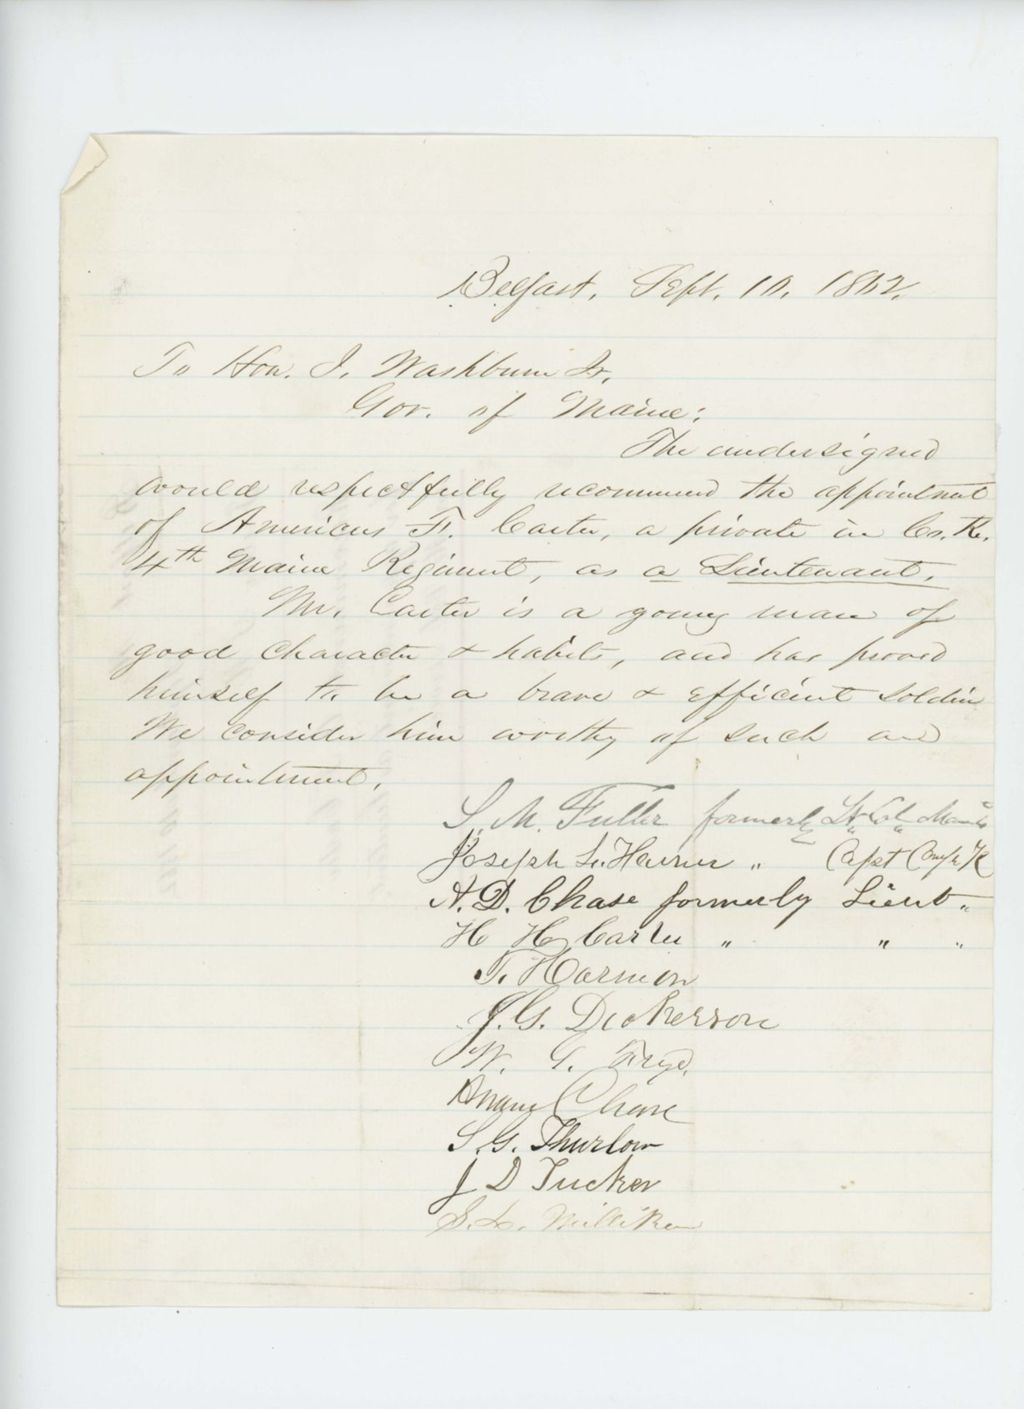 Belfast, Sept. 10, 1862.
To Hon. I. Washburn Jr.
Gov. of Maine:
The undersigned
would respectfully recommend the appointment
of Americus F. Carter, a private in Co. K.
4th Maine Regiment, as a Lieutenant.
Mr. Carter is a young man of
good character & habits, and has proved
himself to be a brave & efficient soldier
We consider him worthy of such an
appointment.
S. M. Fuller formerly Lt. Col.
Joseph L. " Capt Comp K
A. D. Chase formerly Lieut "
H H Carter " " "
T. Harmon
J. G. Dickerson
W. G. Frye.
Chase
S. G. Thurlow
J D Tucker
S. L. Milliken